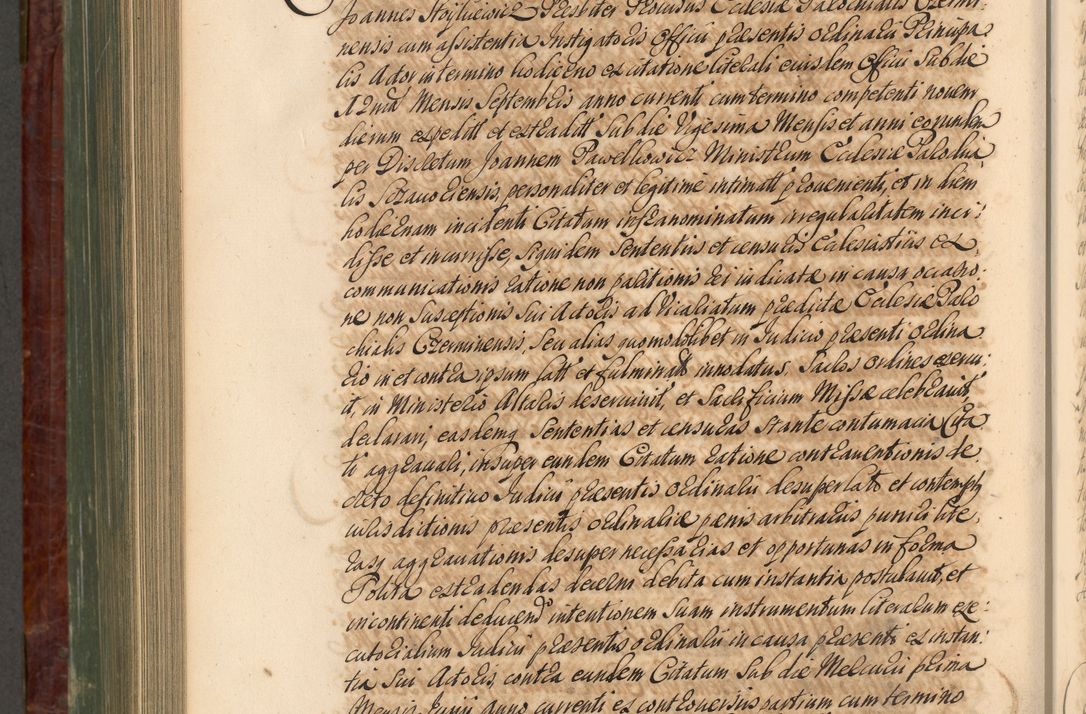 Joannes Stoijkiewicz Presbiter Provisus Ecclesiæ Parochialis Czermi-
nensis cum assistentia Instigatoris Officii præsentis ordinarii Principa
lis Actor in termino hodierno ex citatione literali eiusdem Officii Sub die
12ma Mensis Septembris anno currenti cum termino competenti novem
dierum expeditt et extraditt Sub die Vigesima Mensis et anni eorundem
per Discretum Joannem Pawelkowicz Ministrum Ecclesiæ Parochia
lis personaliter et legitime intimatt provenienti, et in diem
hodiernam incidenti Citatum infranominatum irregularitatem inci
disse et incurrisse, siquidem Sententiis et censuris Ecclesiasticis ex
communicationis ratione non paritionis rei iudicatæ, in causa occasio-
ne non Susceptionis Sui Actoris ad Vicariatum prædictæ Ecclesiæ Paro
chialis Czerminensis, Seu alias quomodolibet in Iudicio præsenti ordina
rio in et contra ipsum latt et fulminatt innodatus, Sacros ordines exercu-
it, in Ministerio Altaris deservivit, et Sacrificium Missæ celebravit,
declarari, easdemq Sententias et censuras Stante contumacia Cita
ti aggravari, insuper eundem Citatum ratione contraventionis de
creto definitivo Iudicii præsentis ordinarii desuper lato et contempt
iurisdictionis præsentis ordinariæ pænis arbitrariis puniri lite-
rasq aggravationis desuper necessarias et opportunas in forma
Polita extradendas decerni debita cum instantia postulavit, et
in continenti deducend intentionem Suam instrumentum literarum exe-
cutorialium Iudicii præsentis ordinarii in causa præsenti ex instan-
tia Sui Actoris contra eundem Citatum Sub die Mercurii prima
Mensis Junii anno currenti ex controversiis partium cum termino